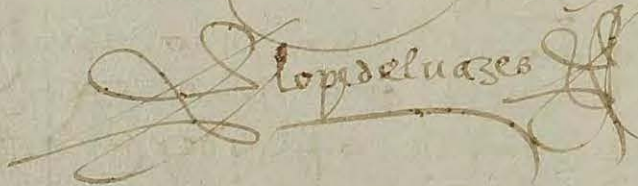 lope de luazes